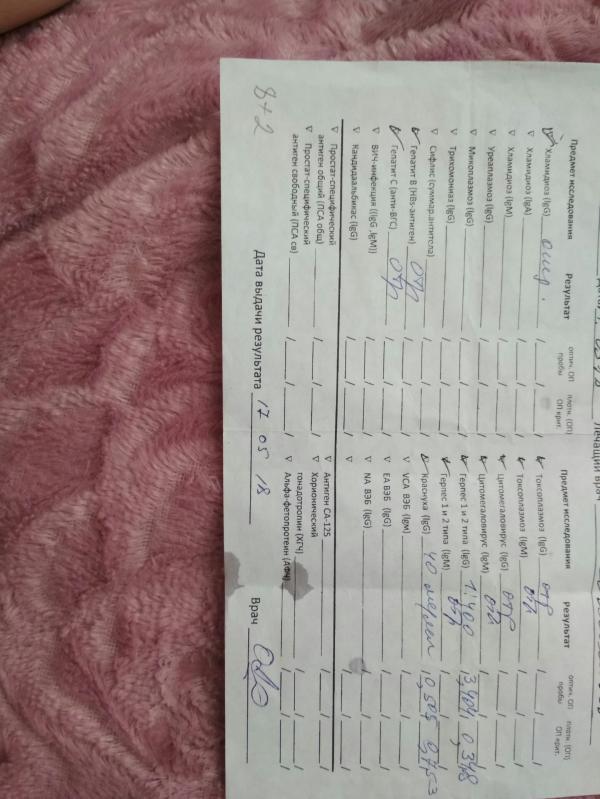 Лечащий врач
Предмет исследования Результат оптич. ОП пробы плотн. (ОП) ОП крит.
∇ Хламидиоз (IgG) отр. /___/___/
∇ Хламидиоз (IgA) /___/___/
∇ Хламидиоз (IgM) /___/___/
∇ Уреаплазмоз (IgG) /___/___/
∇ Микоплазмоз (IgG) /___/___/
∇ Трихомониаз (IgG) /___/___/
∇ Сифилис (суммар.антитела) /___/___/
∇ Гепатит В (HBs-антиген) отр /___/___/
∇ Гепатит С (анти-ВГС) отр /___/___/
∇ ВИЧ-инфекция ((IgG ,IgM)) /___/___/
∇ Кандидаальбикас (IgG) /___/___/
∇ Простат-специфический
антиген общий (ПСА общ) /___/___/
∇ Простат-специфический
антиген свободный (ПСА св) /___/___/
Предмет исследования Результат оптич. ОП пробы плотн. (ОП) ОП крит.
∇ Токсоплазмоз (IgG) отр /___/___/
∇ Токсоплазмоз (IgM) отр /___/___/
∇ Цитомегаловирус (IgG) отр /___/___/
∇ Цитомегаловирус (IgM) отр /___/___/
∇ Герпес 1 и 2 типа (IgG) 1:400 /3,404/0,348/
∇ Герпес 1 и 2 типа (IgM) отр /___/___/
∇ Краснуха (IgG) 40 /0,505/0,753
∇ VCA ВЭБ (IgM) /___/___/
∇ EA ВЭБ (IgG) /___/___/
∇ NA ВЭБ (IgG) /___/___/
∇ /___/___/
∇ Антиген СА-125 /___/___/
∇ Хорионический
гонадотропин (ХГЧ) /___/___/
∇ Альфа-фетопротеин (АФП) /___/___/
8+2
Дата выдачи результата 17 05 18 Врач